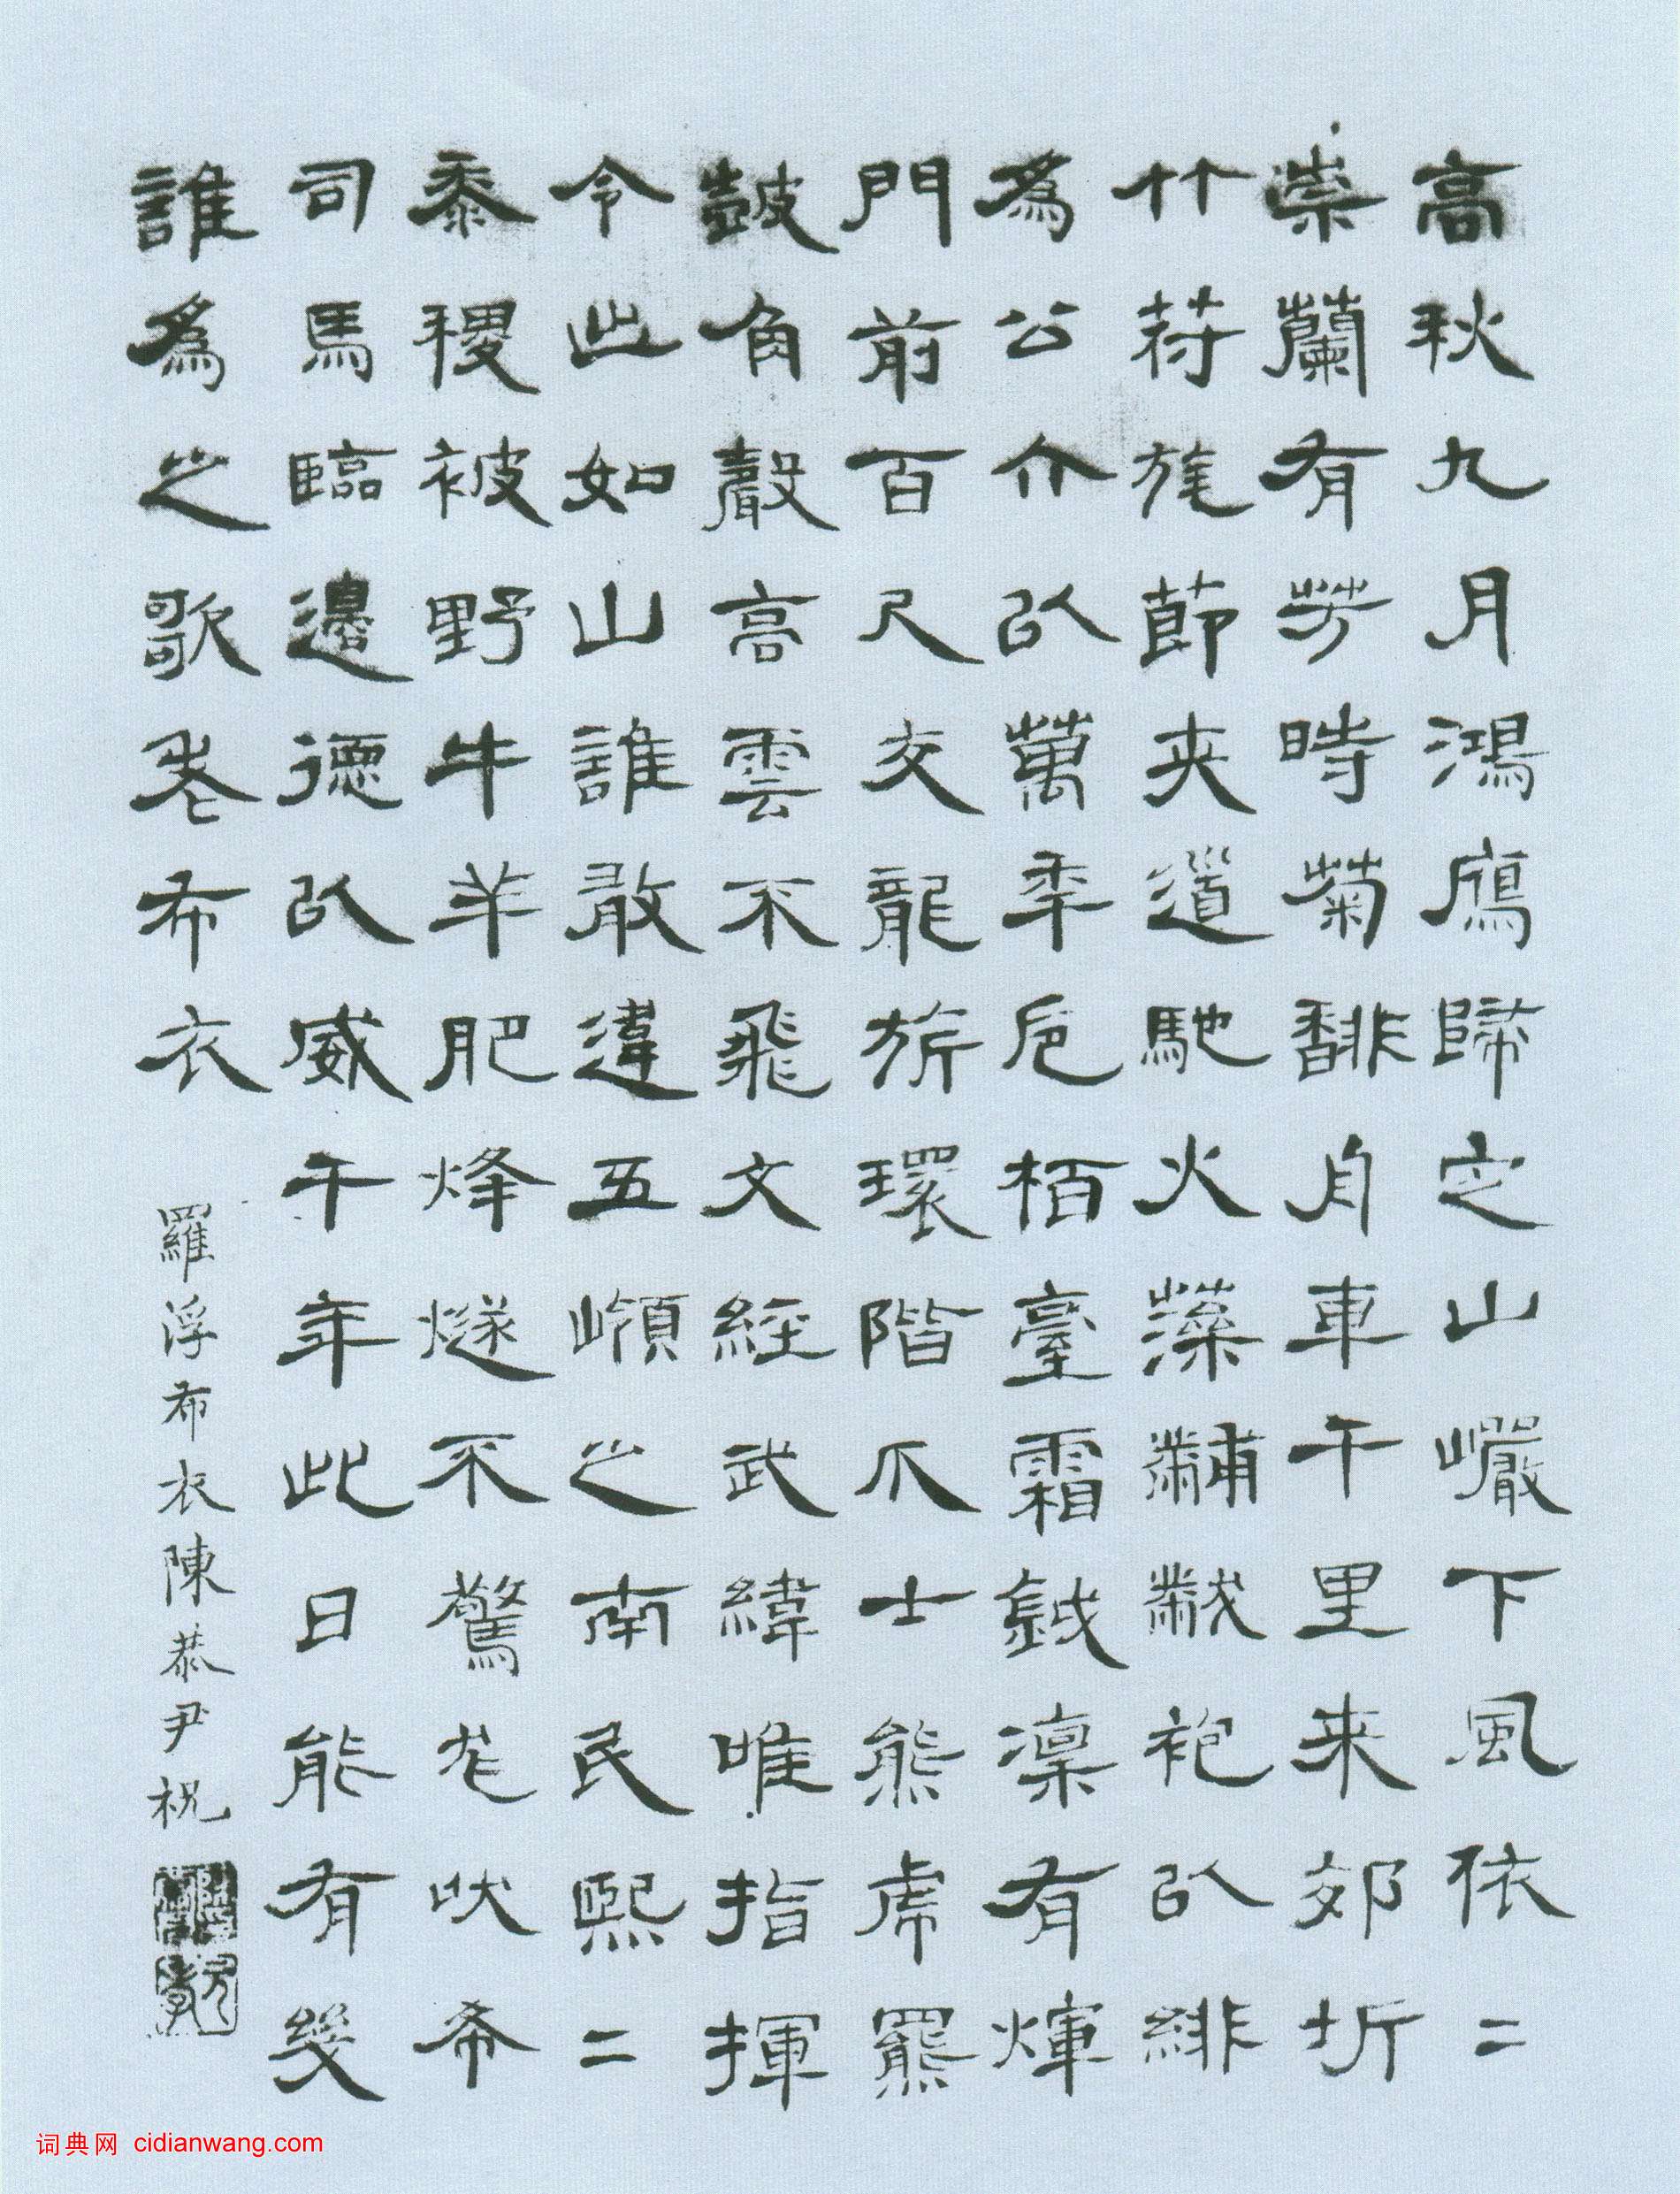 高秋九月鴻鴈歸定山巖下風依二
崇蘭有芳時菊馡舟車千里来郊圻
竹符旄節夾道馳火藻黼黻袍以緋
為公介以萬年卮栢臺霜鉞凛有煇
門前百尺交龍旂環階爪士熊虎羆
鼓角聲高雲不飛文經武緯唯指揮
令出如山誰敢違五嶺之南民熙二
黍稷被野牛羊肥烽燧不驚尨吠希
司馬臨邊德以威千年此日能有幾
誰為之歌老布衣
羅浮布衣陳恭尹祝
词典网 cidianwang.com